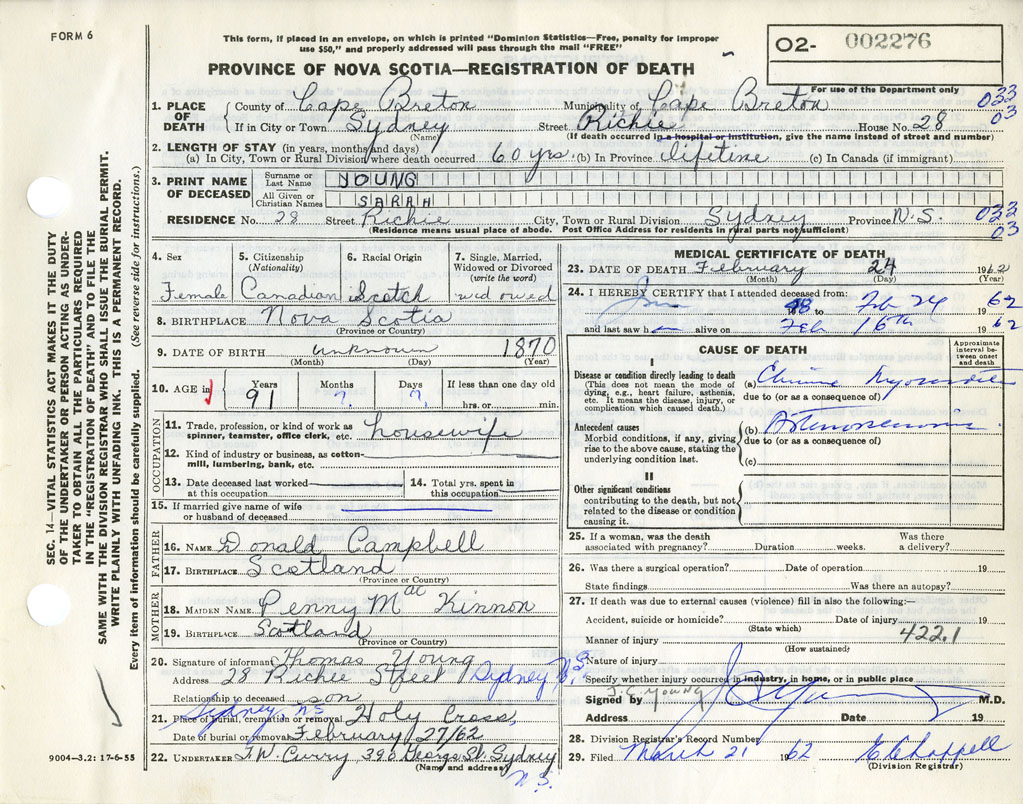 FORM 6
This form, if placed in an envelope, on which is printed "Dominion Statistics—Free, penalty for improper
use $50," and properly addressed will pass through the mail "FREE"
PROVINCE OF NOVA SCOTIA—REGISTRATION OF DEATH
02- 002276
For use of the Department only
033
03
1. PLACE OF DEATH County of Cape Breton Municipality of Cape Breton
If in City or Town Sydney Street Richie House No. 28
(Name) (If death occurred in a hospital or institution, give the name instead of street and number)
2. LENGTH OF STAY (in years, months and days)
(a) In City, Town or Rural Division where death occurred 60 yrs. (b) In Province lifetime (c) In Canada (if immigrant)
3. PRINT NAME OF DECEASED Surname or Last Name YOUNG
All Given or Christian Names SARAH
RESIDENCE No. 28 Street Richie City, Town or Rural Division Sydney Province N.S. 033
03
(Residence means usual place of abode. Post Office Address for residents in rural parts not sufficient)
4. Sex 5. Citizenship (Nationality) 6. Racial Origin 7. Single, Married, Widowed or Divorced (write the word)
Female Canadian Scotch widowed
8. BIRTHPLACE Nova Scotia
(Province or Country)
9. DATE OF BIRTH unknown 1870
(Month) (Day) (Year)
10. AGE in Years Months Days If less than one day old
91 ? ? hrs. or min.
OCCUPATION
11. Trade, profession, or kind of work as
spinner, teamster, office clerk, etc. housewife
12. Kind of industry or business, as cotton-
mill, lumbering, bank, etc.
13. Date deceased last worked at this occupation 14. Total yrs. spent in this occupation
15. If married give name of wife
or husband of deceased
FATHER
16. NAME Donald Campbell
17. BIRTHPLACE Scotland
(Province or Country)
MOTHER
18. MAIDEN NAME Penny Mac Kinnon
19. BIRTHPLACE Scotland
(Province or Country)
20. Signature of informant Thomas Young
Address 28 Richie Street Sydney N.S.
Relationship to deceased son
Sydney NS
21. Place of burial, cremation or removal Holy Cross,
Date of burial or removal February 27/62
22. UNDERTAKER T.W. Curry 393 George St. Sydney
(Name and address) N.S.
MEDICAL CERTIFICATE OF DEATH
23. DATE OF DEATH February 24 1962
(Month) (Day) (Year)
24. I HEREBY CERTIFY that I attended deceased from:
48 to Feb 24 62
and last saw h alive on Feb 16th 1962
CAUSE OF DEATH
Approximate interval between onset and death
I
Disease or condition directly leading to death
(This does not mean the mode of
dying, e.g., heart failure, asthenia,
etc. It means the disease, injury, or
complication which caused death.)
(a)
due to (or as a consequence of)
Antecedent causes
Morbid conditions, if any, giving
rise to the above cause, stating the
underlying condition last.
(b)
due to (or as a consequence of)
(c)
II
Other significant conditions
contributing to the death, but not
related to the disease or condition
causing it.
25. If a woman, was the death Was there
associated with pregnancy? Duration weeks. a delivery?
26. Was there a surgical operation? Date of operation 19
State findings Was there an autopsy?
27. If death was due to external causes (violence) fill in also the following:—
Accident, suicide or homicide? Date of injury 19
(State which) 422.1
Manner of injury
(How sustained)
Nature of injury
Specify whether injury occurred in industry, in home, or in public place
J.C. YOUNG
Signed by M.D.
Address Date 19
28. Division Registrar's Record Number
29. Filed March 21 1962 E Chappell
(Division Registrar)
SEC. 14—VITAL STATISTICS ACT MAKES IT THE DUTY
OF THE UNDERTAKER OR PERSON ACTING AS UNDER-
TAKER TO OBTAIN ALL THE PARTICULARS REQUIRED
IN THE "REGISTRATION OF DEATH" AND TO FILE THE
SAME WITH THE DIVISION REGISTRAR WHO SHALL ISSUE THE BURIAL PERMIT.
WRITE PLAINLY WITH UNFADING INK. THIS IS A PERMANENT RECORD.
Every item of information should be carefully supplied. (See reverse side for instructions.)
9004—3.2: 17-6-55